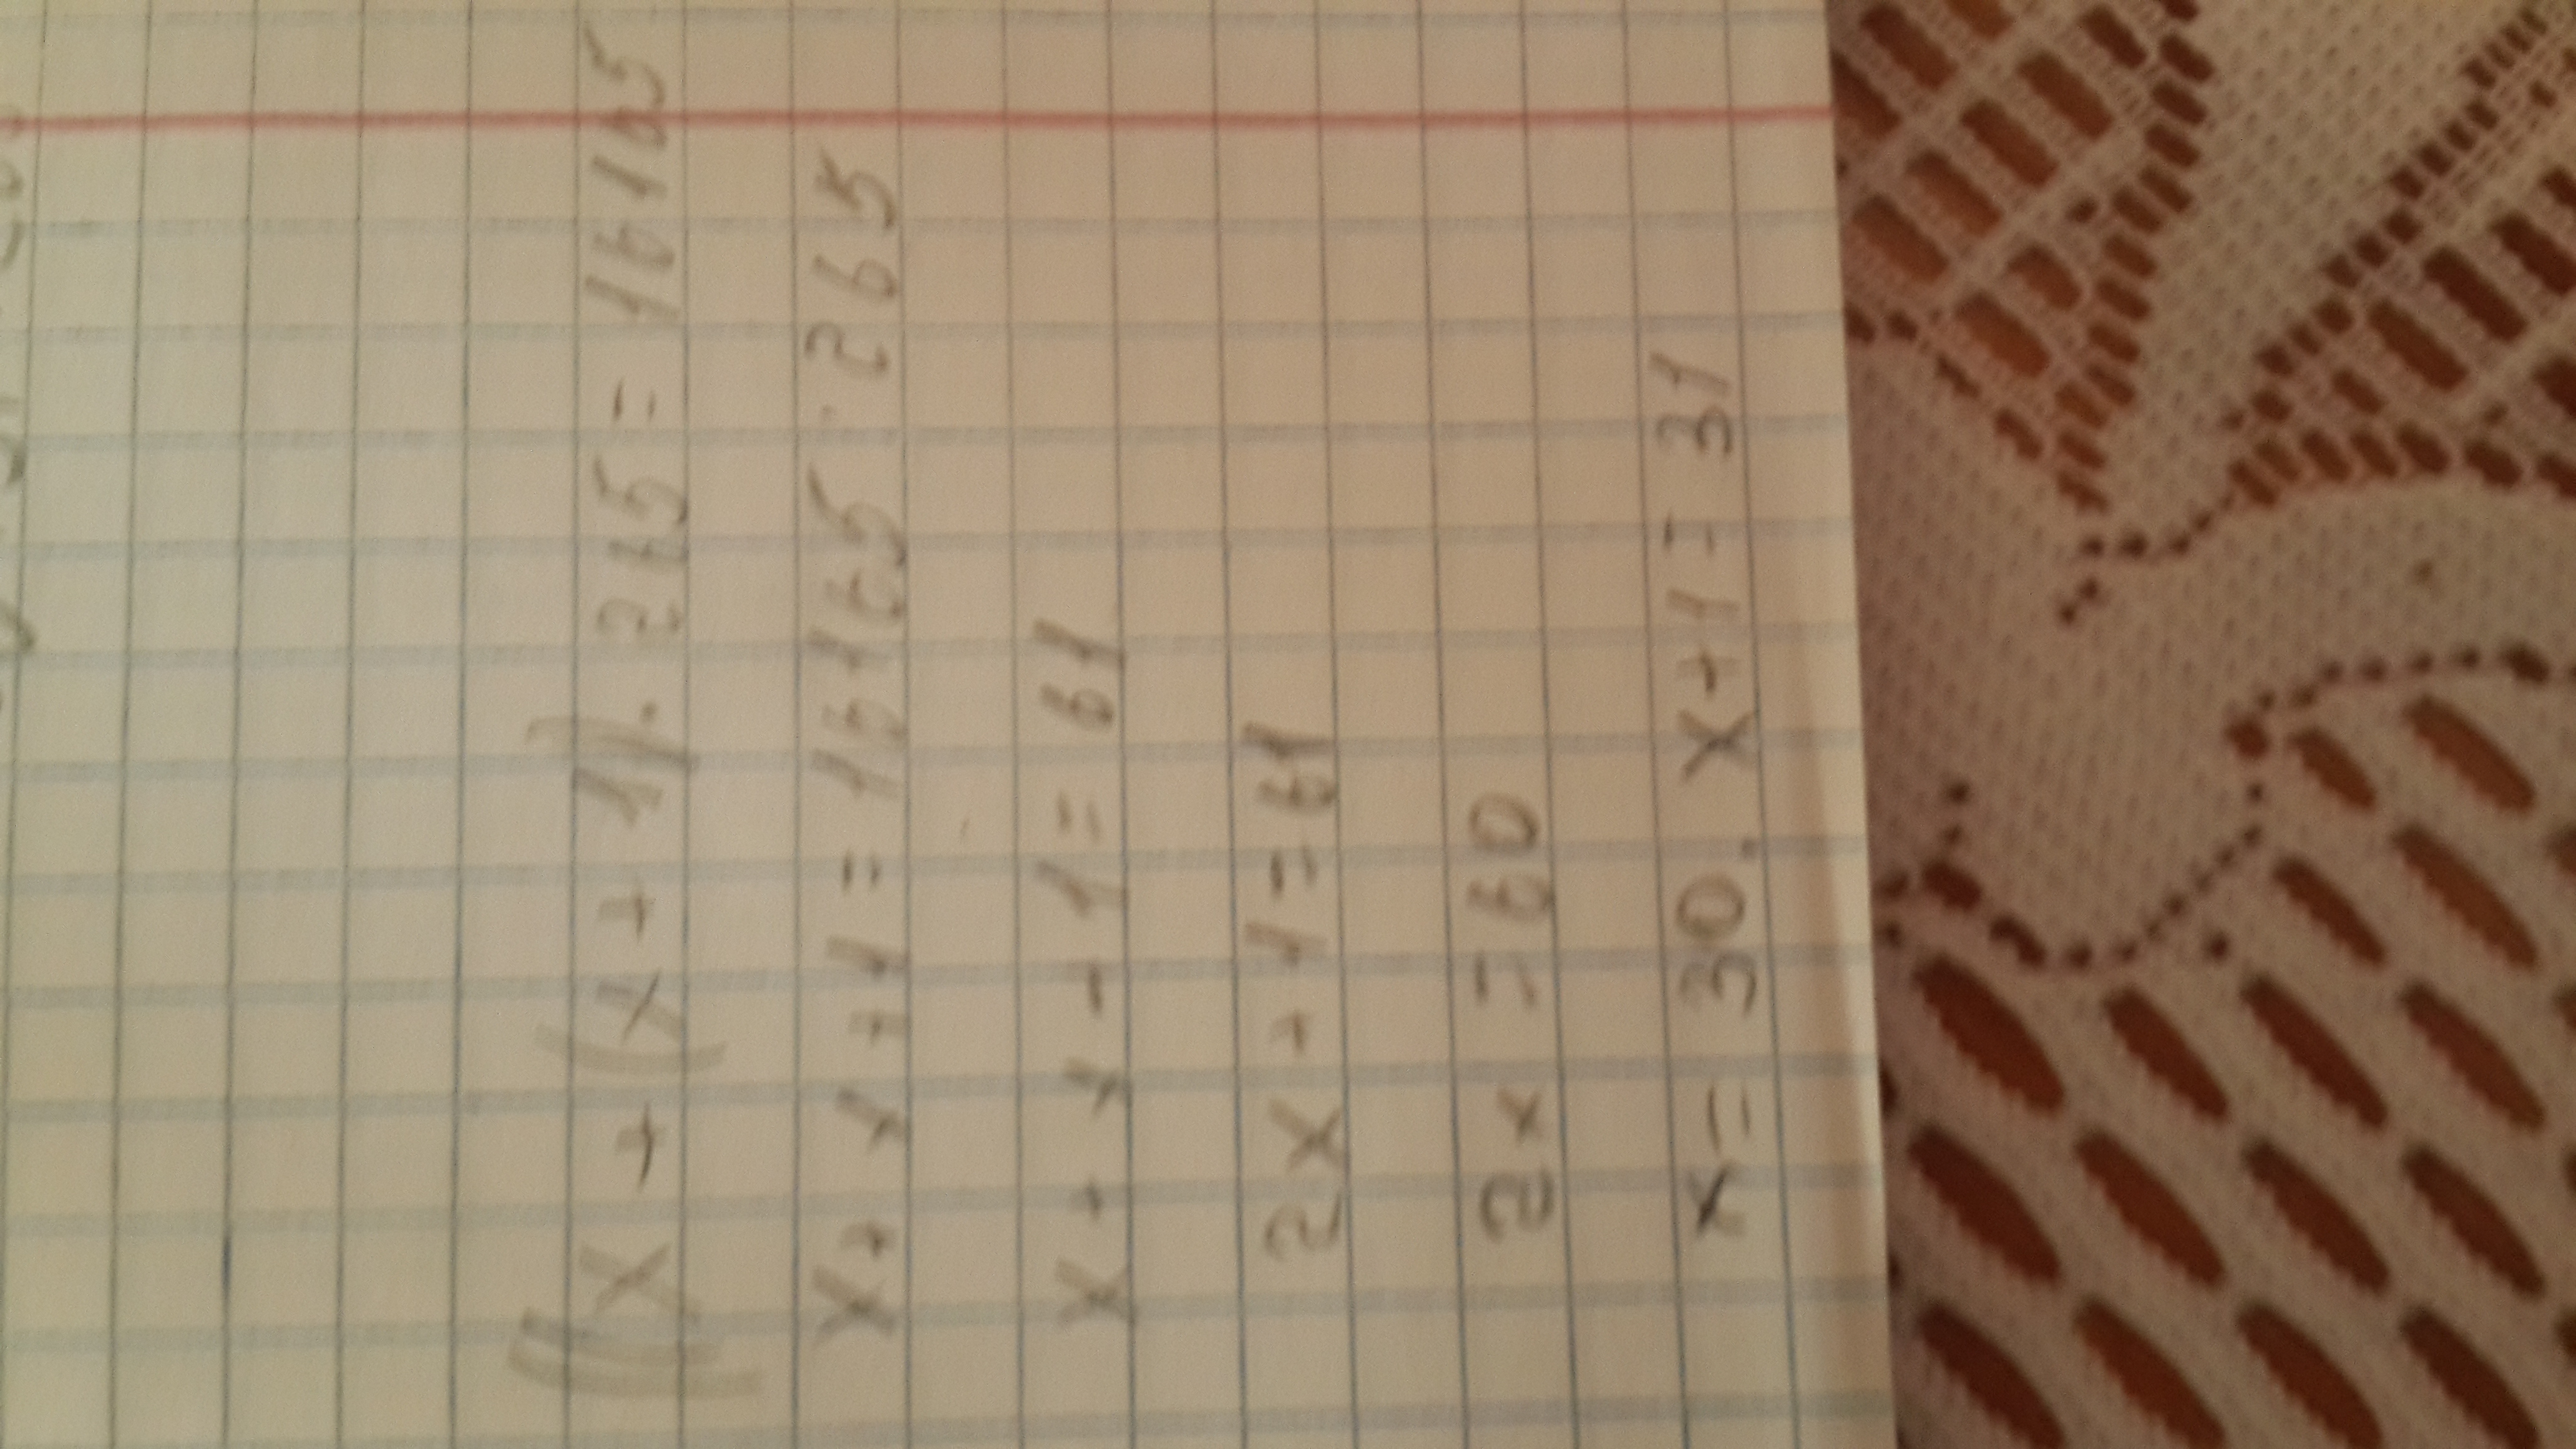 ((x + (x + 1)) · 265 = 16165
x + x + 1 = 16165 : 265
x + x + 1 = 61
2x + 1 = 61
2x = 60
x = 30. x + 1 = 31